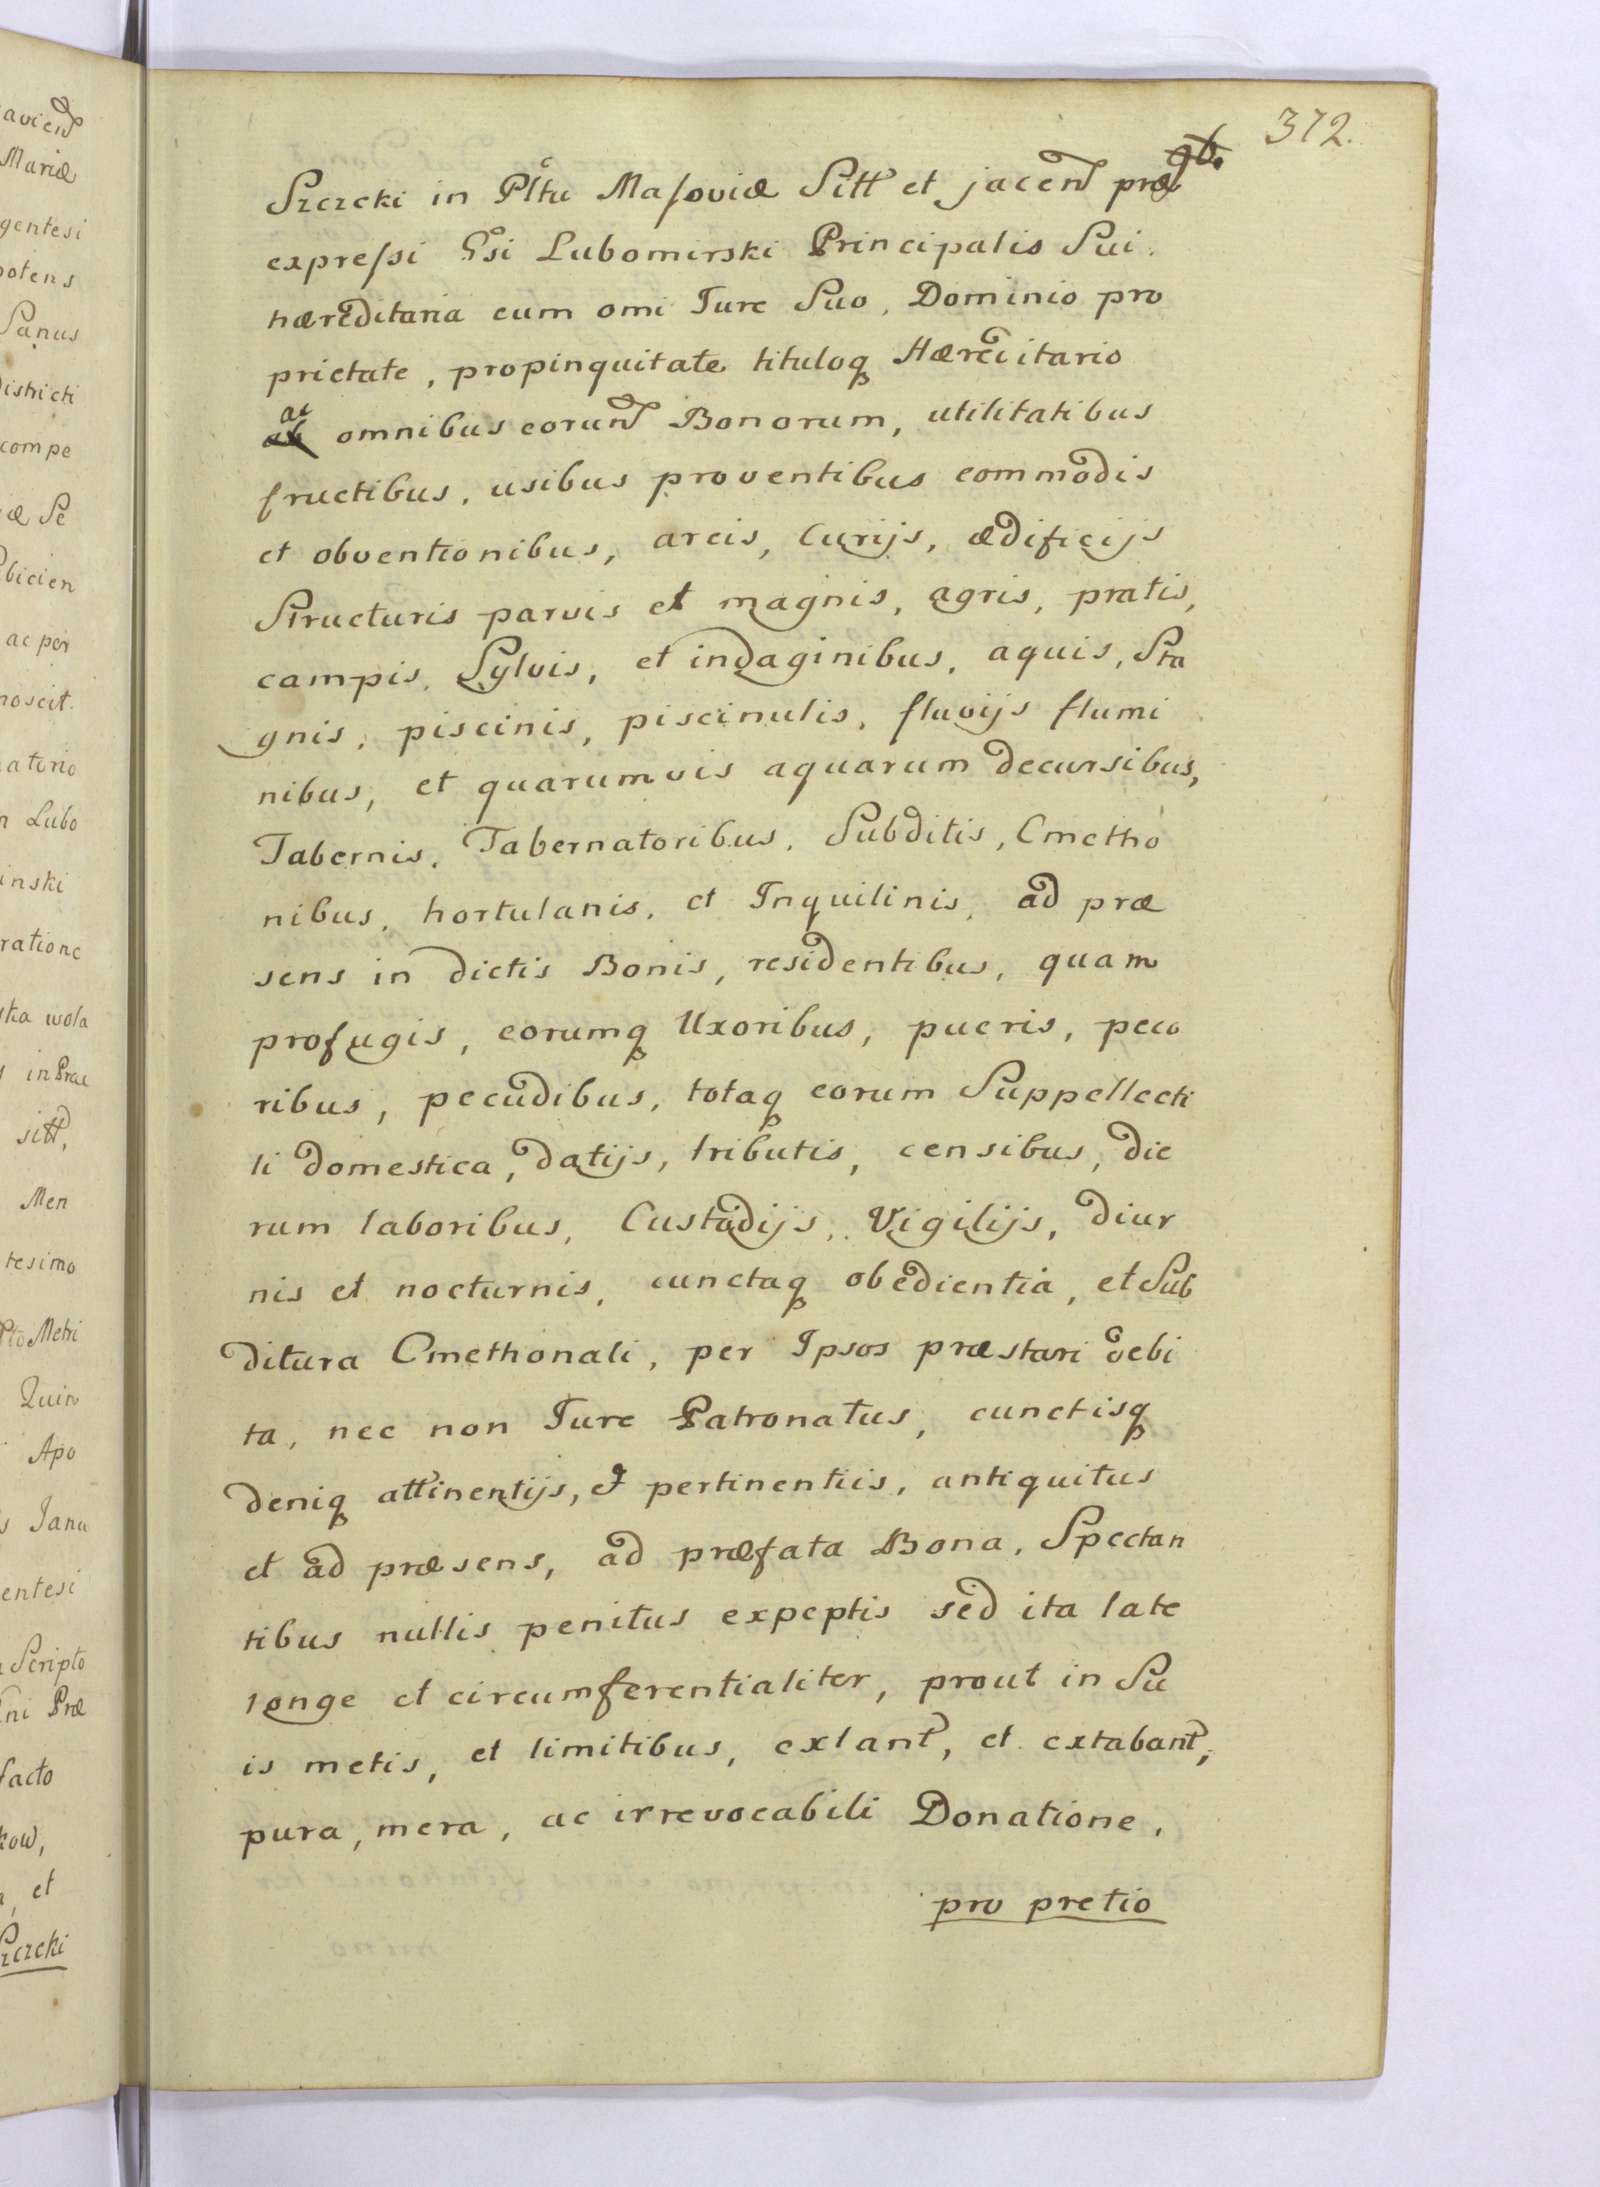 372.
Szczcki in Pltu Masoviæ Sitt et jacen præ
expressi Gsi Lubomirski Principalis Sui
hæreditaria cum omi Jure Suo, Dominio pro
prietate, propinquitate tituloq Hæreditario
ac omnibus eorund Bonorum, utilitatibus
fructibus, usibus proventibus commodis
et obventionibus, areis, Curijs, ædificijs
Structuris parvis et magnis, agris, pratis,
campis, Sylvis, et indaginibus, aquis, Sta
gnis, piscinis, piscinulis, fluvijs flumi
nibus, et quarumvis aquarum decursibus,
Tabernis, Tabernatoribus, Subditis, Cmetho
nibus, hortulanis, et Inquilinis, ad præ
sens in dictis Bonis, residentibus, quam
profugis, eorumq Uxoribus, pueris, peco
ribus, pecudibus, totaq eorum Suppellecti
li domestica, datijs, tributis, censibus, die
rum laboribus, Custodijs, Vigilijs, diur
nis et nocturnis, cunctaq obedientia, et Sub
ditura Cmethonali, per Ipsos præstari debi
ta, nec non Jure Patronatus, cunctisq
deniq attinentijs, et pertinentiis, antiquitus
et ad præsens, ad præfata Bona, Spectan
tibus nullis penitus expeptis sed ita late
longe et circumferentialiter, prout in Su
is metis, et limitibus, extant, et extabant,
pura, mera, ac irrevocabili Donatione,
pro pretio
Mariæ
gentesi
potens
Panus
districti
compe
æ Se
bicien
ac per
noscit.
atorio
n Lubo
inski
ratione
ska wola
in Præ
sitt,
Men
tesimo
Metri
Quin
Apo
s Janu
entesi
Scripto
ni Præ
facto
kow,
a, et
Szczcki